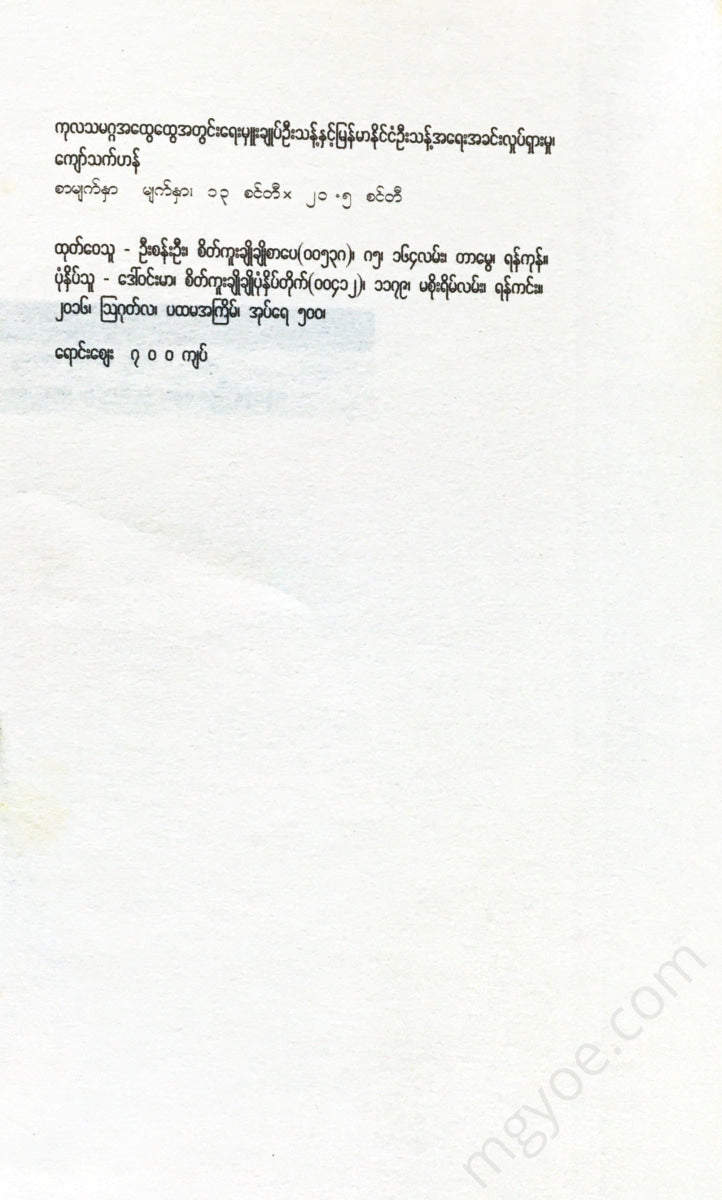 ကုလသမဂ္ဂအထွေထွေအတွင်းရေးမှူးချုပ်ဦးသန့်နှင့်မြန်မာနိုင်ငံဦးသန့်အရေးအခင်းလှုပ်ရှားမှု၊
ကျော်သက်ဟန်
စာမျက်နှာ မျက်နှာ၊ ၁၃ စင်တီ × ၂၁ .၅ စင်တီ
ထုတ်ဝေသူ - ဦးစန်းဦး၊ စိတ်ကူးချိုချိုစာပေ(၀၀၅၃၈)၊ ၈၅၊ ၁၆၄လမ်း၊ တာမွေ၊ ရန်ကုန်။
ပုံနှိပ်သူ - ဒေါ်ဝင်းမာ၊ စိတ်ကူးချိုချိုပုံနှိပ်တိုက်(၀၀၄၁၂)၊ ၁၁၇၉၊ မစိုးရိမ်လမ်း၊ ရန်ကင်း။
၂၀၁၆၊ ဩဂုတ်လ၊ ပထမအကြိမ်၊ အုပ်ရေ ၅၀၀၊
ရောင်းဈေး ၇ ၀ ၀ ကျပ်
mgyoe.com